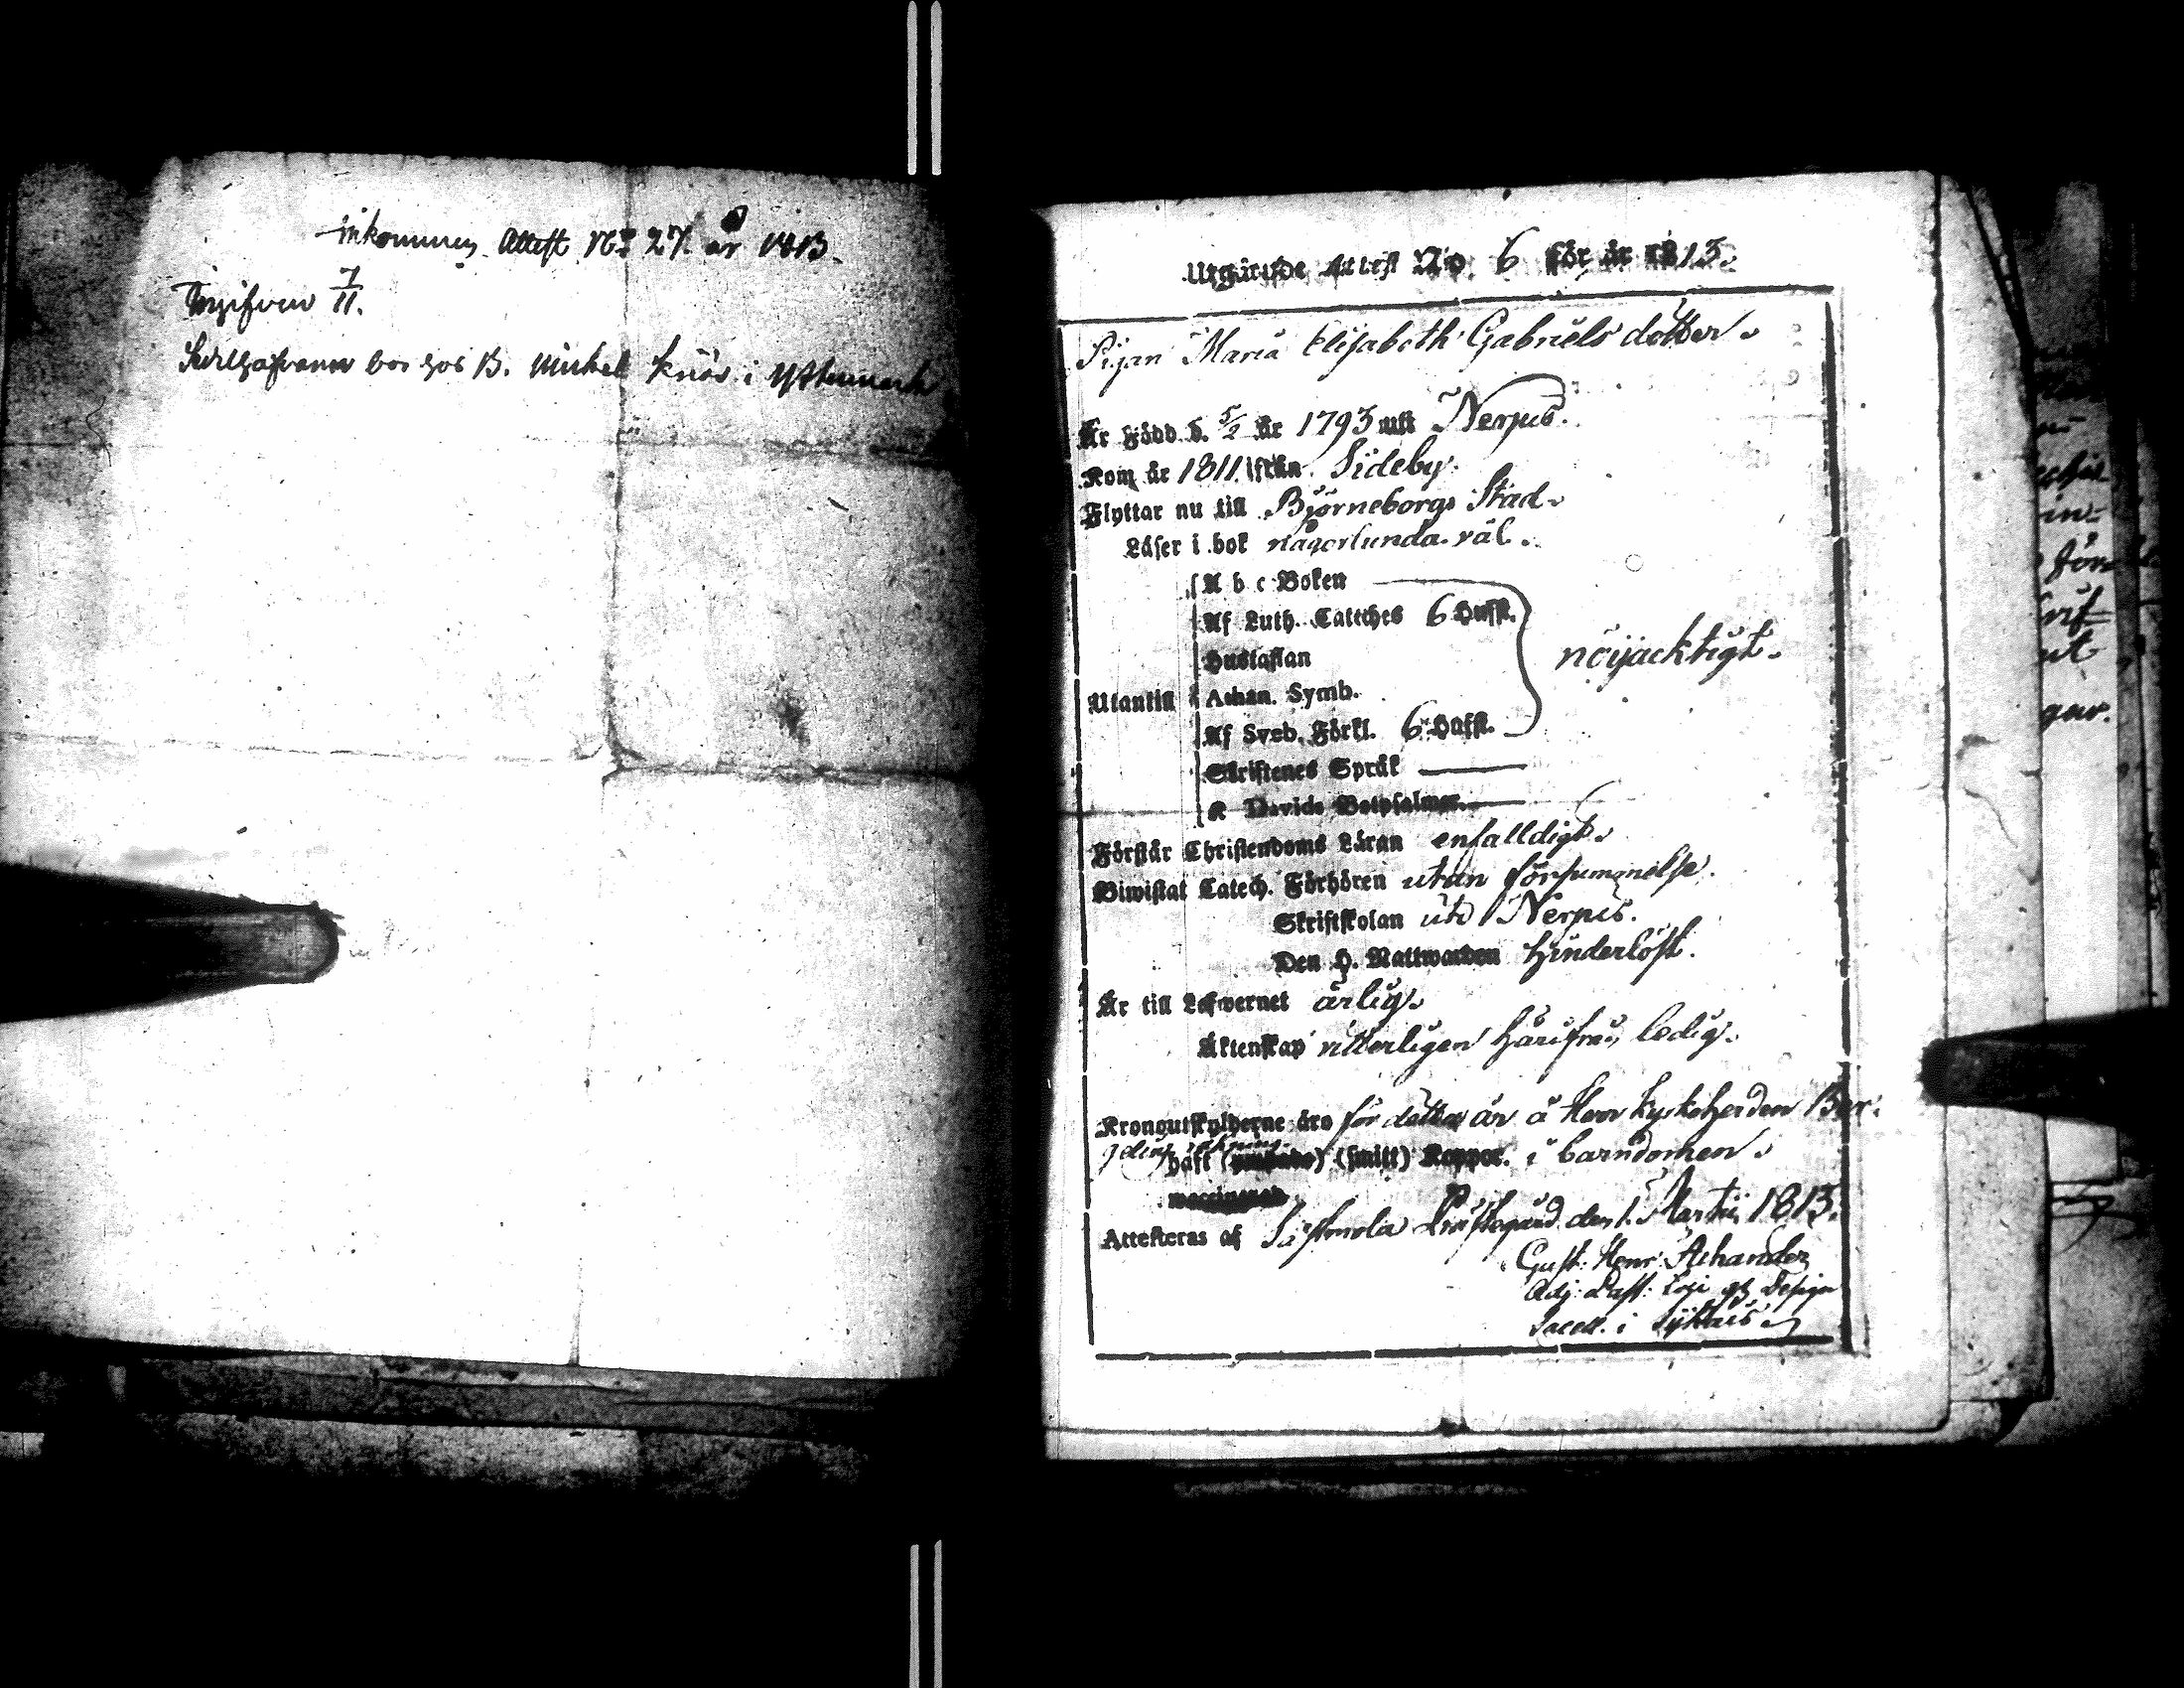 inkommen Attest No 27 år 1813.
Ingifven 7/11.
hos B. Michel Knös i Ystmark
Utgående Attest No. 6 för år 1813.
Pigan Maria Elisabeth Gabriels dotter.
Är Född d. 5/2 År 1793 uti Nerpis.
Kom år 1811 ifrån Sideby.
Flyttar nu till Björneborgs Stad.
Läser i bok någorlunda väl.
A b c Boken
Af Luth. Catéches 6 Hufst.
Hustaflan
nöijacktigt.
Utantill
Athan. Symb.
Af Sveb. Förkl. 6 Hufst.
Skriftenes Språk
K Davids Botpsalmer.
Förstår Christendoms Läran enfalldigt.
Biwistat Catech. Förhören utan försummelse.
Skriftskolan uti Nerpis.
Den H. Nattwarden hinderlöst.
Är till Lefwernet ärlig.
Äktenskap vitterligen härifrån ledig.
Kronoutskylderne äro för detta år å Herr Kyrkoherden Ber-
gelins räkning.
haft (smitt) Koppor. i barndomen.
Attesteras af Sastmola Prästegård den 1. Martii 1813.
Gust. Henr. Achander
Adj. Past. Loci och Design.
Sacell. i